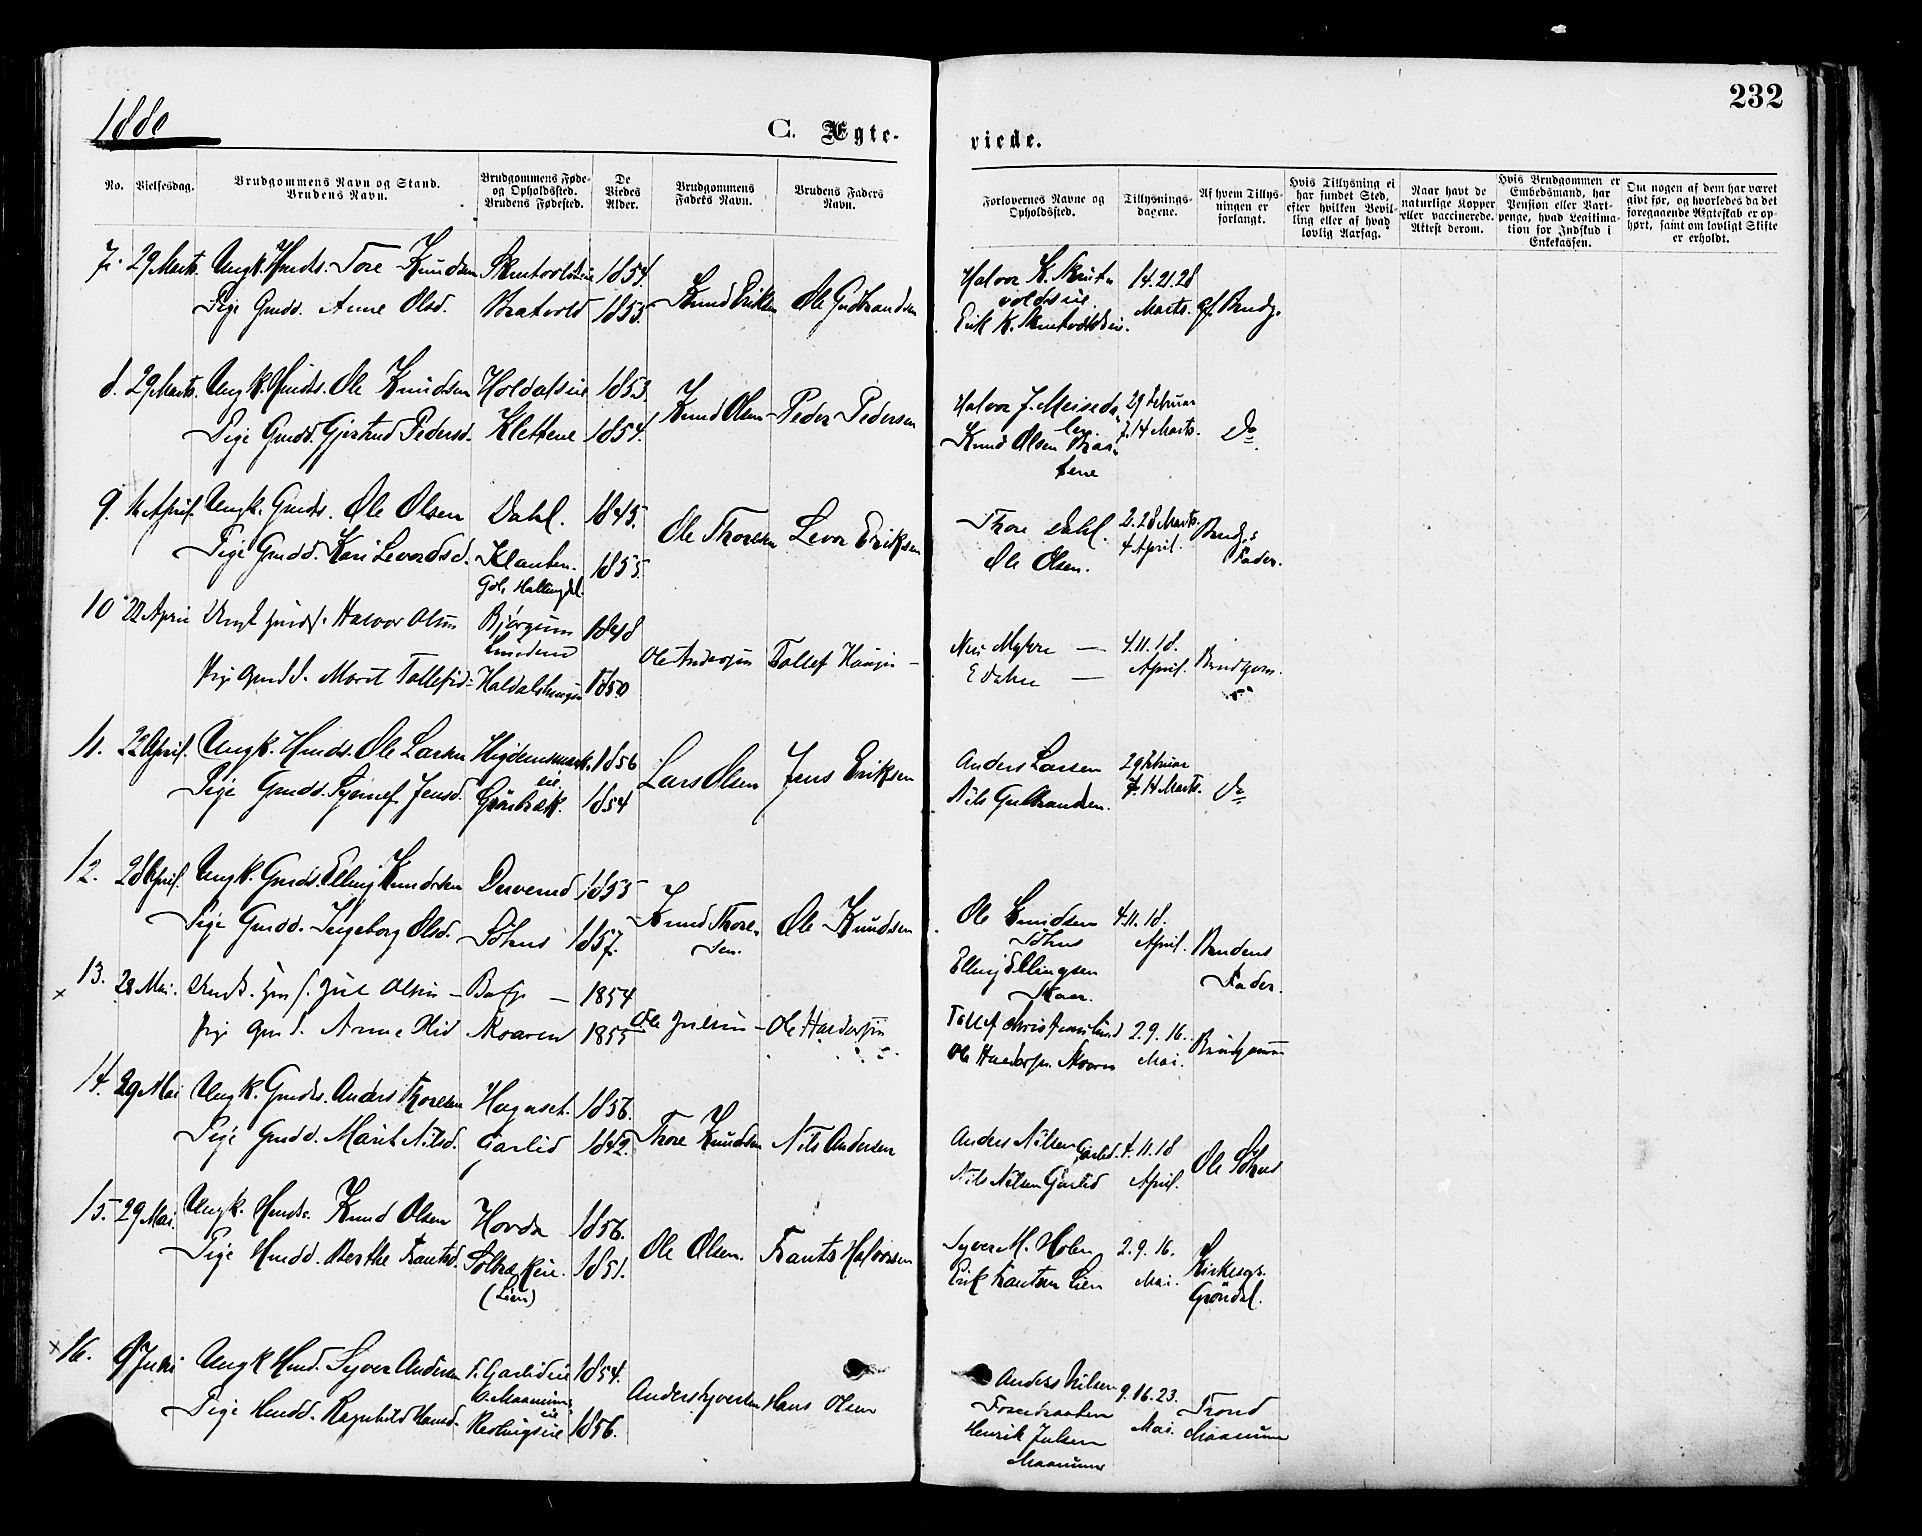 232
1880
C. Ægteviede.
No.
Vielsesdag.
Brudgommens Navn og Stand.
Brudens Navn.
Brudgommens Føde-
og Opholdssted.
Brudens Fødested.
De
Viedes
Alder.
Brudgommens
Faders Navn.
Brudens Faders
Navn.
Forlovernes Navne og
Opholdssted.
Tillysnings-
dagene.
Af hvem Tillys-
ningen er
forlangt.
Hvis Tillysning ei
har fundet Sted,
efter hvilken Bevil-
ling eller af hvad
lovlig Aarsag.
Naar havt de
naturlige Kopper
eller vaccinerede.
Attest derom.
Hvis Brudgommen er
Embedsmand, har
Pension eller Vart-
penge, hvad Legitima-
tion for Indskud i
Enkekassen.
Om nogen af dem har været
givt før, og hvorledes da det
foregaaende Ægteskab er op-
hørt, samt om lovligt Skifte
er erholdt.
7. 29 Marts. Ungk. Hmds. Tore Knudsen 1854. Knud Eriksen Ole Gudbrandsen
Pige Gmdd. Anne Olsd. Bratvold 1853.
Halvor K. Skrut-
voldseie.
Erik K. Skrutvoldseie.
14. 21. 28
Marts. Brudg.
8. 29 Marts. Ungk. Hmds. Ole Knudsen Holdalseie 1853. Knud Olsen Peder Pedersen
Pige Gmdd. Gjertrud Pedersd. Klettene 1854.
Halvor J. Meiseda-
len.
Knud Olsen Braa-
tene
29 Februar
7. 14 Marts. Do
9. April. Ungk. Gmds. Ole Olsen Dahl. 1845. Ole Thoresen Levor Eriksen
Pige Gmdd. Kari Levordsd. Klanten. 1855.
Gol, Hallingdal.
Thore Dahl.
Ole Olsen.
2. 28 Marts.
4 April.
Brudg.s
Fader.
10 22 April Ungk Halvor Olsen Bjørgum 1848 Ole Andersen Tollef Haugen
Pige Gmdd. Marit Tollefsd. Haldalshaugen 1850
4. 11. 18.
April. Brudgom.
11. 22 April. Ungk. Hmds. Ole Larsen 1856 Lars Olsen Jens Eriksen
Pige Gmdd. Jensd. 1854
Anders Larsen
Nils Gulbrandsen.
29 Februar
7. 14 Marts. Do
12. 28 April. Ungk. Gmds. Elling Knudsen 1855 Knud Thore-
sen. Ole Knudsen
Pige Gmdd. Ingeborg Olsd. Søhus 1857.
Ole Knudsen
Søhus
Elling Ellingsen
Skaar.
4. 11. 18.
April. Brudens
Fader.
13. 28 Mai. Ungk. Juel Olsen 1854 Ole Juelsen Ole Haldorsen
Pige Anne Skaaren 1855
Ole Haldorsen Skaaren
2. 9. 16.
Mai. Brudgommen
14. 29 Mai Ungk. Gmds. Anders Thoresen Hagaset. 1856. Thore Knudsen Nils Andersen
Pige Gmdd. Marit Nilsd. Garlid 1842.
Anders Nilsen Garlid.
Nils Nilsen Garlid
4. 11. 18
April. Ole Søhus
15. 29 Mai. Ungk. Hmds. Knud Olsen Hovda 1856. Ole Olsen. Frants Halvorsen
Pige Hmdd. Berthe Frantsd. Solbrækeie. 1851.
(Lien)
Syver M. Holen
Erik Frantsen Lien
2. 9. 16.
Mai. Kirkesgr.
Grøndal.
16. 9 Juni Ungk Hmd. Syver Andersen F. Garlideie 1854. Anders Syversen Hans Olsen
O. Maanum-
eie
Pige Hmdd. Ragnhild Hansd. 1856.
Anders Nilsen
Henrik Julsen
Maanum
9. 16. 23.
Mai. Trond
Maanum